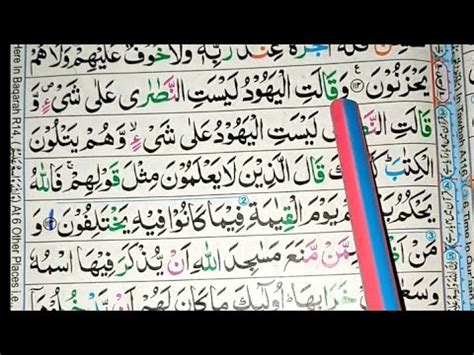 فَلَهٗۤ اَجْرُهٗ عِنْدَ رَبِّهٖ وَلَا خَوْفٌ عَلَيْهِمْ وَلَا هُمْ
يَحْزَنُوْنَ ۝۱۱۲ وَقَالَتِ الْيَهُوْدُ لَيْسَتِ النَّصٰرٰى عَلٰى شَىْءٍ وَّ
قَالَتِ النَّصٰ لَيْسَتِ الْيَهُوْدُ عَلٰى شَىْءٍ ۙ وَّهُمْ يَتْلُوْنَ
الْكِتٰبَ ؕ كَ قَالَ الَّذِيْنَ لَا يَعْلَمُوْنَ مِثْلَ قَوْلِهِمْ ۚ فَاللّٰهُ
يَحْكُمُ بَ يَوْمَ الْقِيٰمَةِ فِيْمَا كَانُوْا فِيْهِ يَخْتَلِفُوْنَ ۝ وَ
مَنْ اَظْ مِمَّنْ مَّنَعَ مَسٰجِدَ اللّٰهِ اَنْ يُّذْكَرَ فِيْهَا اسْمُهٗ
وَسَعٰ خَرَابِهَا ؕ اُولٰٓئِكَ مَا كَانَ لَهُمْ اَنْ يَّدْخُلُوْهَاۤ
Here in Baqarah R14
6 Other Places i.e.,